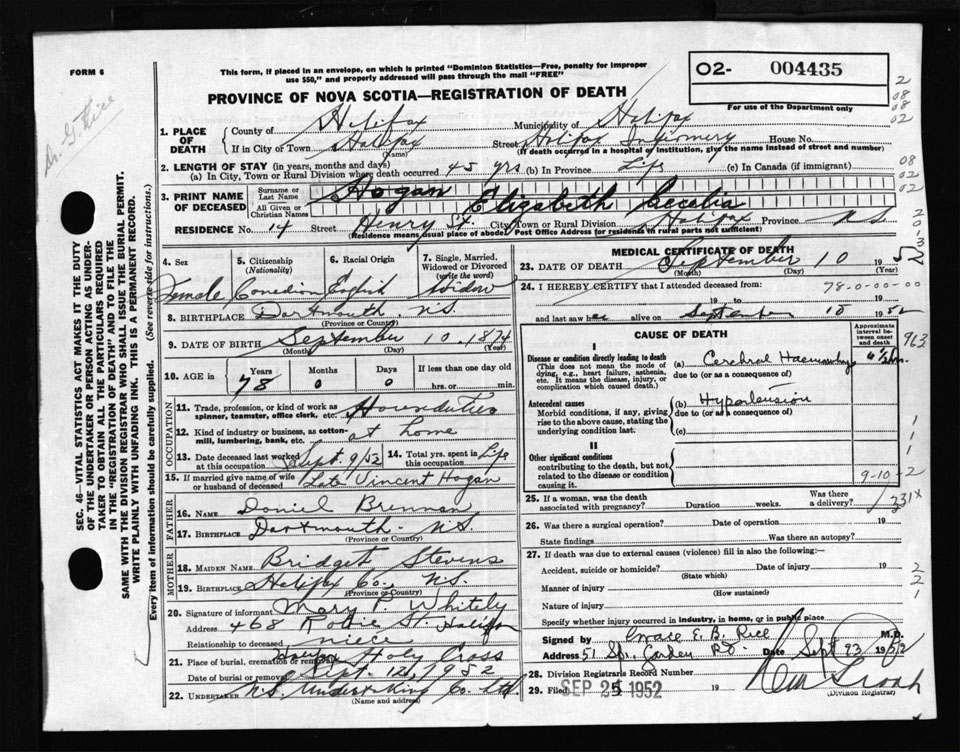 FORM 6
This form, if placed in an envelope, on which is printed "Dominion Statistics—Free, penalty for improper
use $50," and properly addressed will pass through the mail "FREE"
O2- 004435
For use of the Department only
PROVINCE OF NOVA SCOTIA—REGISTRATION OF DEATH
Dr. G. Rice
2
08
08
02
08
02
1. PLACE OF DEATH
County of Halifax Municipality of Halifax
If in City of Town Halifax (Name) Street Halifax Infirmary House No.
(If death occurred in a hospital or institution, give the name instead of street and number)
2. LENGTH OF STAY (in years, months and days)
(a) In City, Town or Rural Division where death occurred 45 yrs (b) In Province Life (c) In Canada (if immigrant)
3. PRINT NAME OF DECEASED
Surname or Last Name Hogan
All Given or Christian Names Elizabeth Cecelia
RESIDENCE No. 14 Street Henry St. City, Town or Rural Division Halifax Province N.S.
(Residence means usual place of abode. Post Office Address for residents in rural parts not sufficient)
4. Sex Female
5. Citizenship (Nationality) Canadian
6. Racial Origin English
7. Single, Married, Widowed or Divorced (write the word) Widow
8. BIRTHPLACE Dartmouth N.S.
(Province or Country)
9. DATE OF BIRTH September 10, 1874
(Month) (Day) (Year)
10. AGE in Years 78 Months 0 Days 0 If less than one day old hrs. or min.
OCCUPATION
11. Trade, profession, or kind of work as spinner, teamster, office clerk, etc. Houseduties
12. Kind of industry or business, as cotton-mill, lumbering, bank, etc. at home
13. Date deceased last worked at this occupation Sept. 9/52 14. Total yrs. spent in this occupation Life
15. If married give name of wife or husband of deceased Late Vincent Hogan
FATHER
16. Name Daniel Brennan
17. Birthplace Dartmouth N.S.
(Province or Country)
MOTHER
18. Maiden Name Bridget Stevens
19. Birthplace Halifax Co., N.S.
(Province or Country)
20. Signature of informant Mary P. Whitely
Address 468 St. Halifax
Relationship to deceased niece
21. Place of burial, cremation or removal Holy Cross
Date of burial or removal Sept. 12, 1952
22. Undertaker N.S. Undertaking Co. Ltd.
(Name and address)
MEDICAL CERTIFICATE OF DEATH
23. DATE OF DEATH September 10 1952
(Month) (Day) (Year)
24. I HEREBY CERTIFY that I attended deceased from: 78-0-00-00
19 to 19
and last saw her alive on September 10 1952
CAUSE OF DEATH
Approximate interval between onset and death
I
Disease or condition directly leading to death
(This does not mean the mode of dying, e.g., heart failure, asthenia, etc. It means the disease, injury, or complication which caused death.)
(a) Cerebral Haemorrhage
due to (or as a consequence of)
Antecedent causes
Morbid conditions, if any, giving rise to the above cause, stating the underlying condition last.
(b) Hypertension
due to (or as a consequence of)
(c)
II
Other significant conditions
contributing to the death, but not related to the disease or condition causing it.
9-10-2
25. If a woman, was the death associated with pregnancy? Duration weeks. Was there a delivery?
331x
26. Was there a surgical operation? Date of operation 19
State findings Was there an autopsy?
27. If death was due to external causes (violence) fill in also the following:—
Accident, suicide or homicide? Date of injury 19
(State which)
Manner of injury
(How sustained)
Nature of injury
Specify whether injury occurred in industry, in home, or in public place
Signed by Grace E. B. Rice M.D.
Address 51 Spr. Garden Rd. Date Sept 23 1952
28. Division Registrars Record Number
29. Filed SEP 25 1952 19
(Division Registrar)
SEC. 46—VITAL STATISTICS ACT MAKES IT THE DUTY
OF THE UNDERTAKER OR PERSON ACTING AS UNDER-
TAKER TO OBTAIN ALL THE PARTICULARS REQUIRED
IN THE "REGISTRATION OF DEATH" AND TO FILE THE
SAME WITH THE DIVISION REGISTRAR WHO SHALL ISSUE THE BURIAL PERMIT.
WRITE PLAINLY WITH UNFADING INK. THIS IS A PERMANENT RECORD.
Every item of information should be carefully supplied. (See reverse side for instructions.)